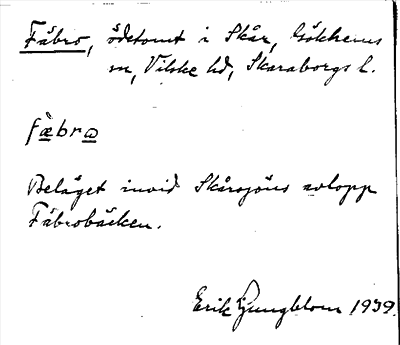 Fäbro, ödetomt i Skår, Gökhems
sn, Vilske hd, Skaraborgs l.
fæ̀bra
Beläget invid Skårsjöns avlopp
Fäbrobäcken.
Erik Ljungblom 1939.